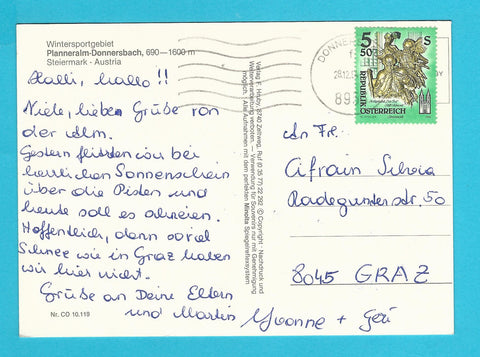 Wintersportgebiet
Planneralm-Donnersbach, 690—1600 m
Steiermark - Austria
Halli, hallo!!
Viele, lieben Grüße von
der Alm.
Gestern flitzten wir bei
herrlichem Sonnenschein
über die Pisten und
heute soll es schneien.
Hoffentlich, denn soviel
Schnee wie in Graz haben
wir hier nicht.
Grüße an Deine Eltern
und Martin Yvonne + Geri
Nr. CD 10.118
Verlag F. Hruby, 8740 Zeltweg, Ruf 0 35 77/22 292 © Copyright - Nachdruck und
Weiterverarbeitung verboten. — Verwendung für Souvenirs nur mit Genehmigung
möglich. Alle Aufnahmen mit dem perfekten Minolta Spiegelreflexsystem
DONNER
28.12.
89
5 50 S
REPUBLIK
ÖSTERREICH
An Fr.
Afrain Silvia
Radegunderstr. 50
8045 GRAZ